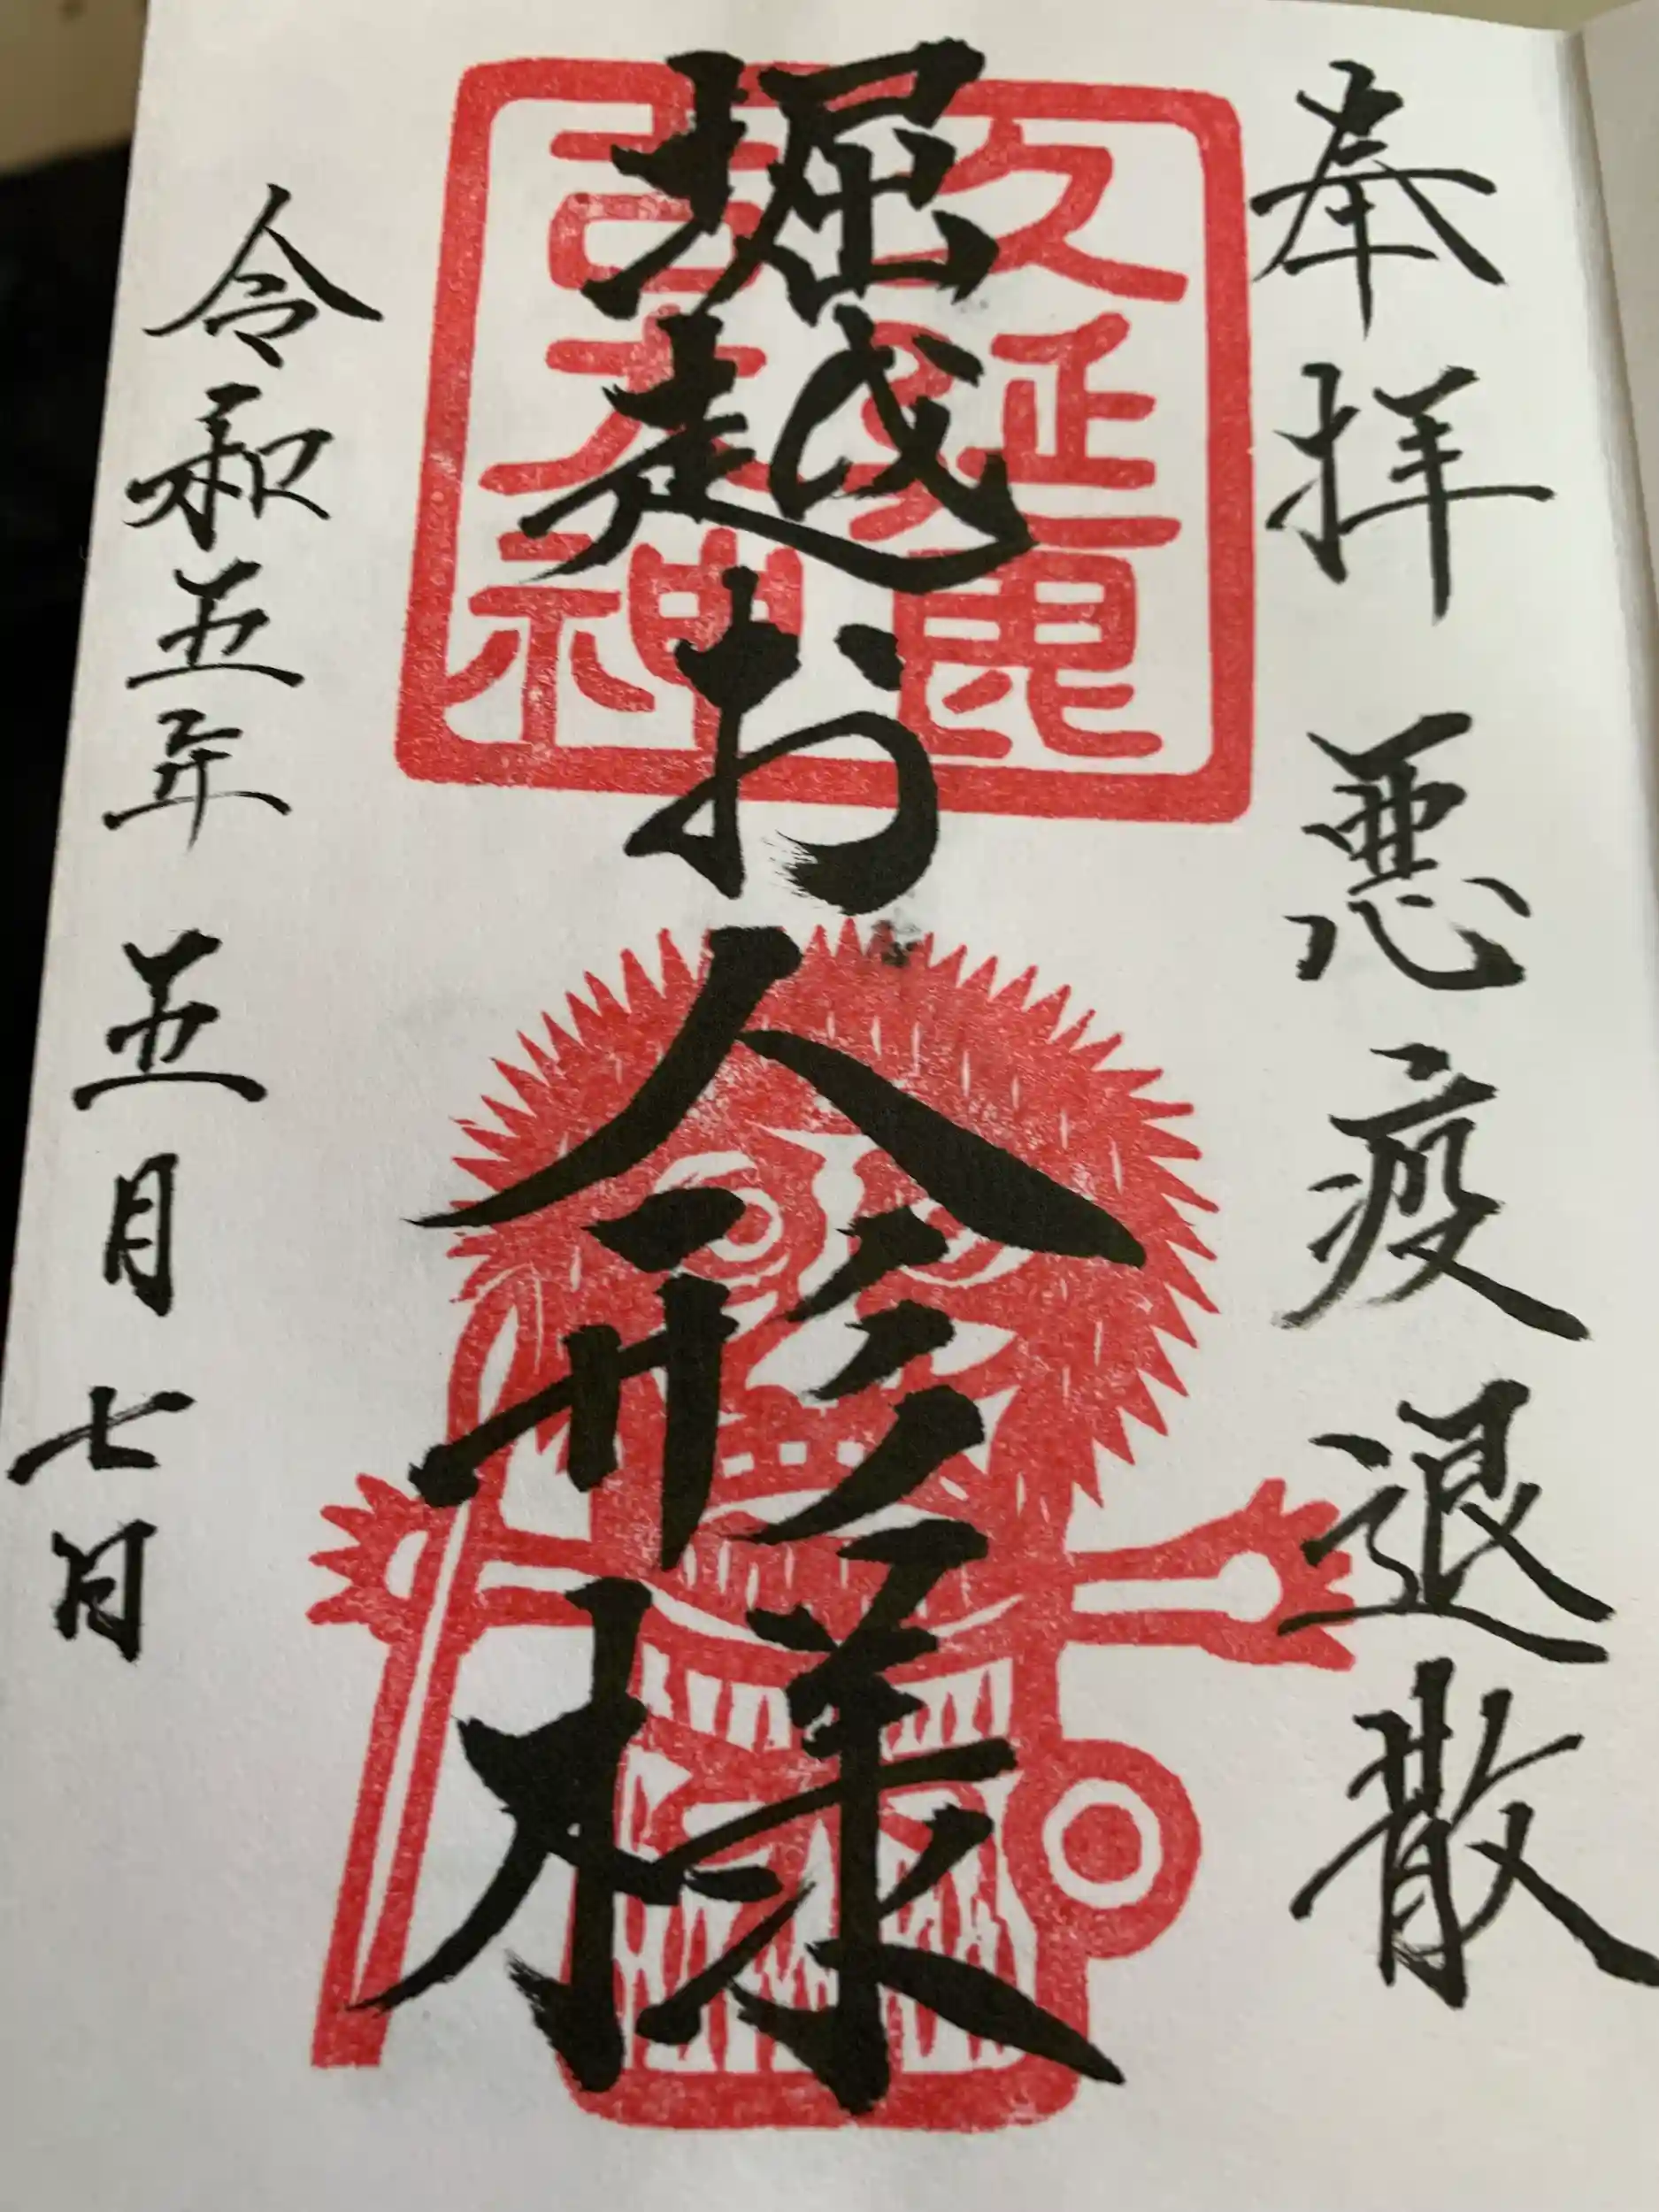 奉拝 悪疫退散
堀越お人形様
久延毘古大神
令和五年五月七日